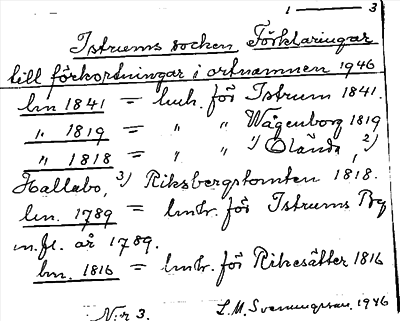 1 — 3
Istrums socken Förklaringar
till förkortningar i ortnamnen 1946
lm 1841 = lmh. för Istrum 1841.
" 1819 = " " Wågenborg 1819
" 1818 = " " 1) Ölända, 2)
Hallabo, 3) Riksbergstomten 1818.
lm. 1789 = lmtr. för Istrums By
m.fl. år 1789.
lm. 1816 = lmtr. för Rikesätter 1816
N:r 3. L.M. Svenungsson. 1946